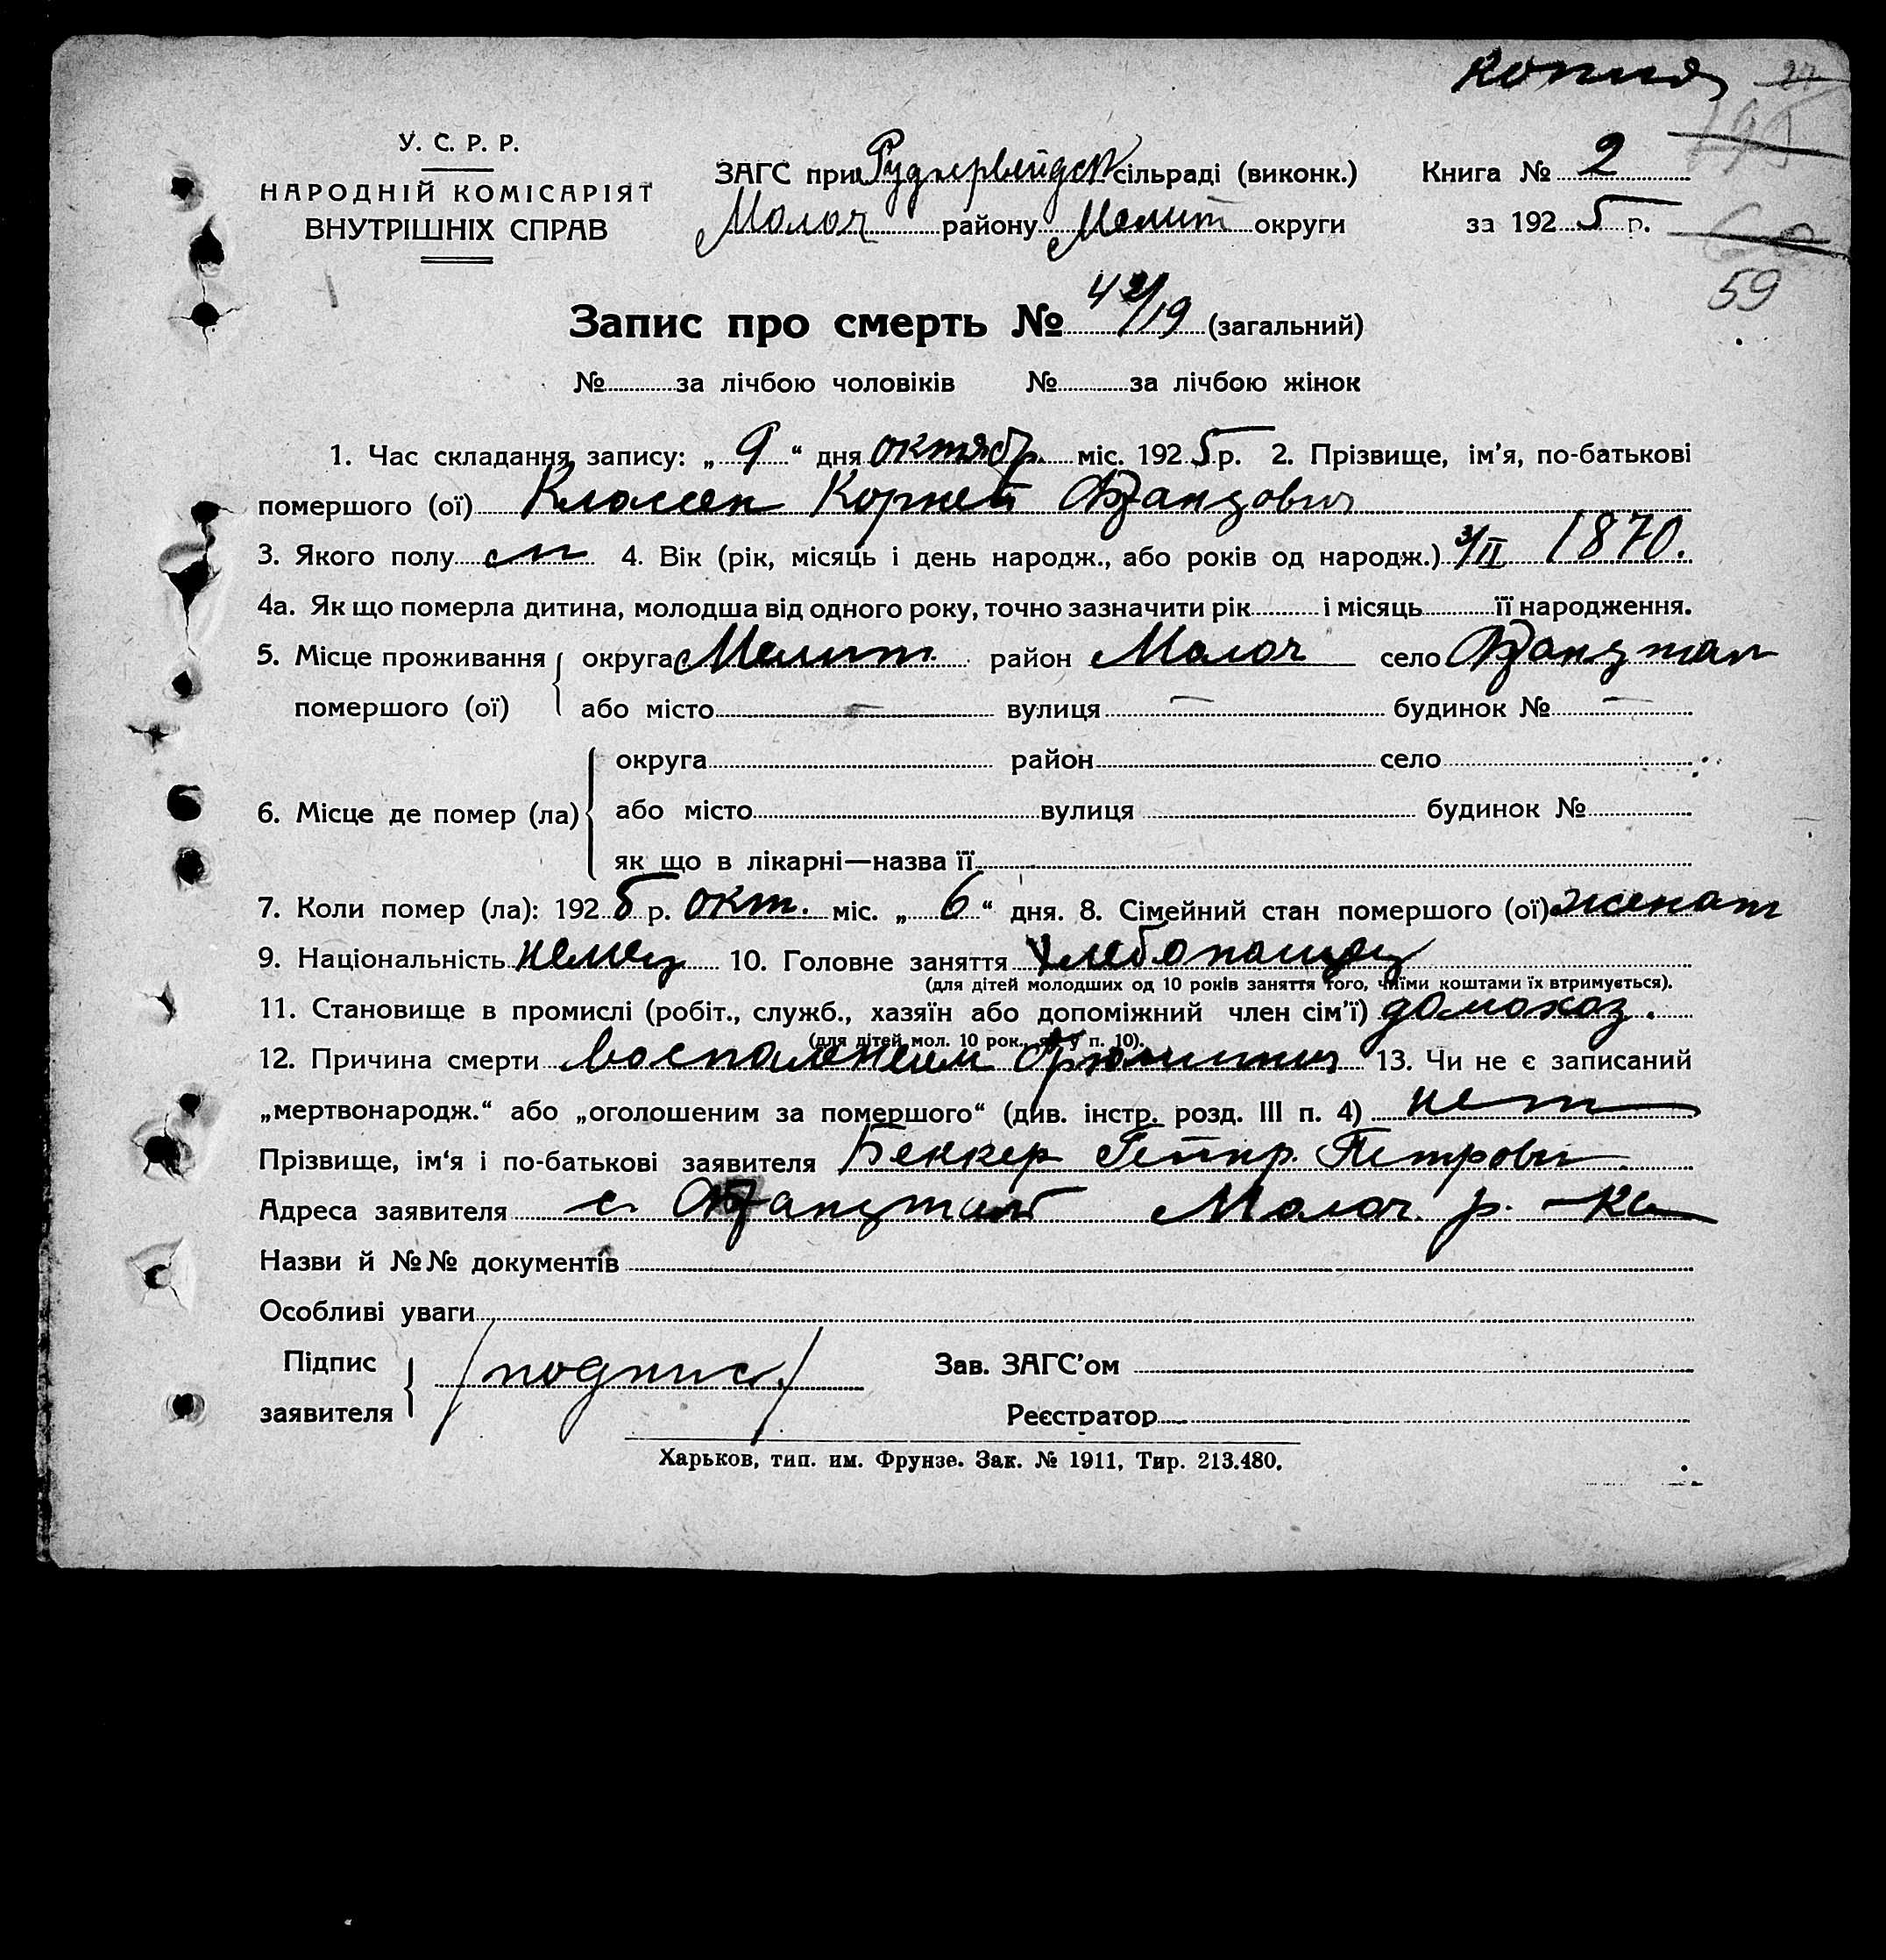 копия 27
195
У. С. Р. Р.
НАРОДНІЙ КОМІСАРІЯТ
ВНУТРІШНІХ СПРАВ
ЗАГС при Руднервейдск сільраді (виконк.) Книга № 2
Молоч району Мелит округи за 1925 р.
60
59
Запис про смерть № 42/19 (загальний)
№ за лічбою чоловіків № за лічбою жінок
1. Час складання запису: „9“ дня октябр. міс. 1925 р. 2. Прізвище, ім’я, по-батькові
помершого (ої) Классен Корней Францович
3. Якого полу м 4. Вік (рік, місяць і день народж., або років од народж.) 3/II 1870.
4а. Як що померла дитина, молодша від одного року, точно зазначити рік і місяць її народження.
5. Місце проживання округа Мелит. район Молоч село Францтал
помершого (ої) або місто — вулиця — будинок № —
округа район село
6. Місце де помер (ла) або місто вулиця будинок №
як що в лікарні—назва її
7. Коли помер (ла): 1925 р. окт. міс. „6“ дня. 8. Сімейний стан помершого (ої) женат
9. Національність немец 10. Головне заняття хлебопашец
(для дітей молодших од 10 років заняття того, чиїми коштами їх втримується).
11. Становище в промислі (робіт., служб., хазяїн або допоміжний член сім’ї) домохоз.
(для дітей мол. 10 рок., як у п. 10).
12. Причина смерти воспалением брюшины 13. Чи не є записаний
„мертвонародж.“ або „оголошеним за помершого“ (див. інстр. розд. III п. 4) нет
Прізвище, ім‘я і по-батькові заявителя Беккер Гейнр. Петрович
Адреса заявителя с. Францтал Молоч. р.-ка
Назви й №№ документів
Особливі уваги
Підпис
заявителя /подпись/ Зав. ЗАГС’ом
Реєстратор
Харьков, тип. им. Фрунзе. Зак. № 1911, Тир. 213.480.